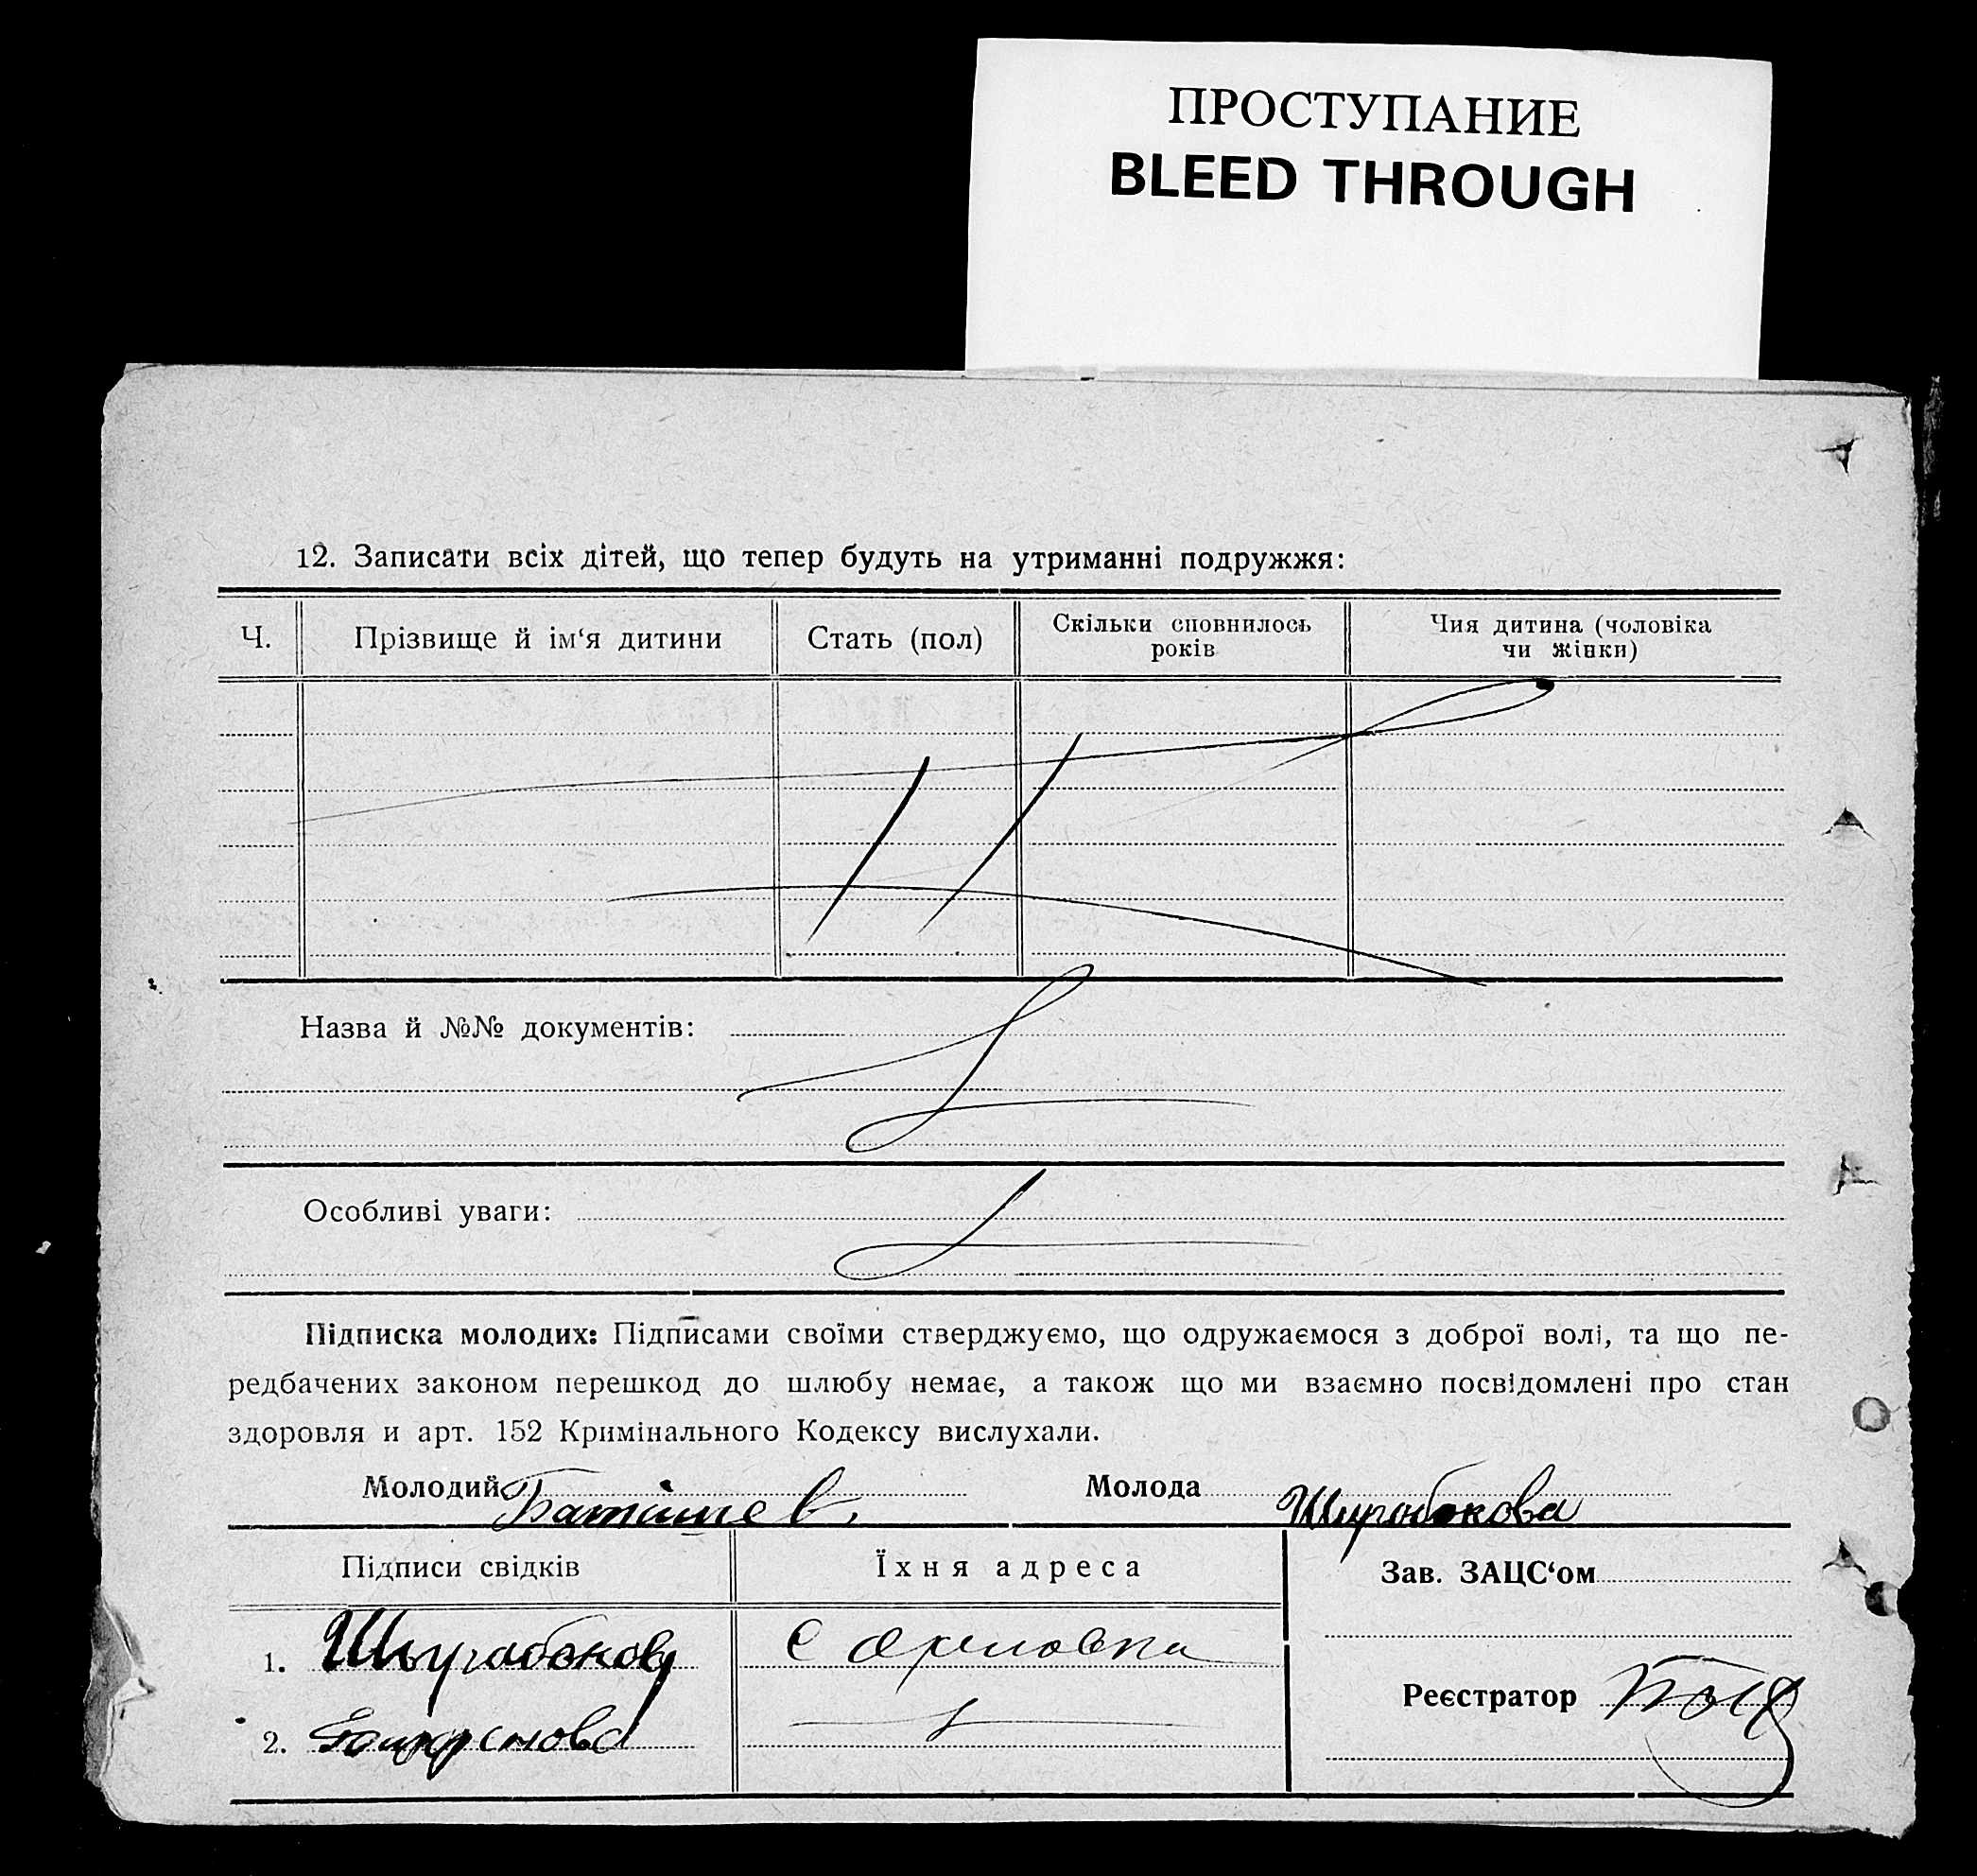 ПРОСТУПАНИЕ
BLEED THROUGH
12. Записати всіх дітей, що тепер будуть на утриманні подружжя:
Ч. Прізвище й ім‘я дитини Стать (пол) Скільки сповнилось років Чия дитина (чоловіка чи жінки)
Назва й №№ документів:
Особливі уваги:
Підписка молодих: Підписами своїми стверджуємо, що одружаємося з доброї волі, та що пе-
редбачених законом перешкод до шлюбу немає, а також що ми взаємно посвідомлені про стан
здоровля и арт. 152 Кримінального Кодексу вислухали.
Молодий Молода
Підписи свідків Їхня адреса Зав. ЗАЦС‘ом
1. с
Реєстратор
2.